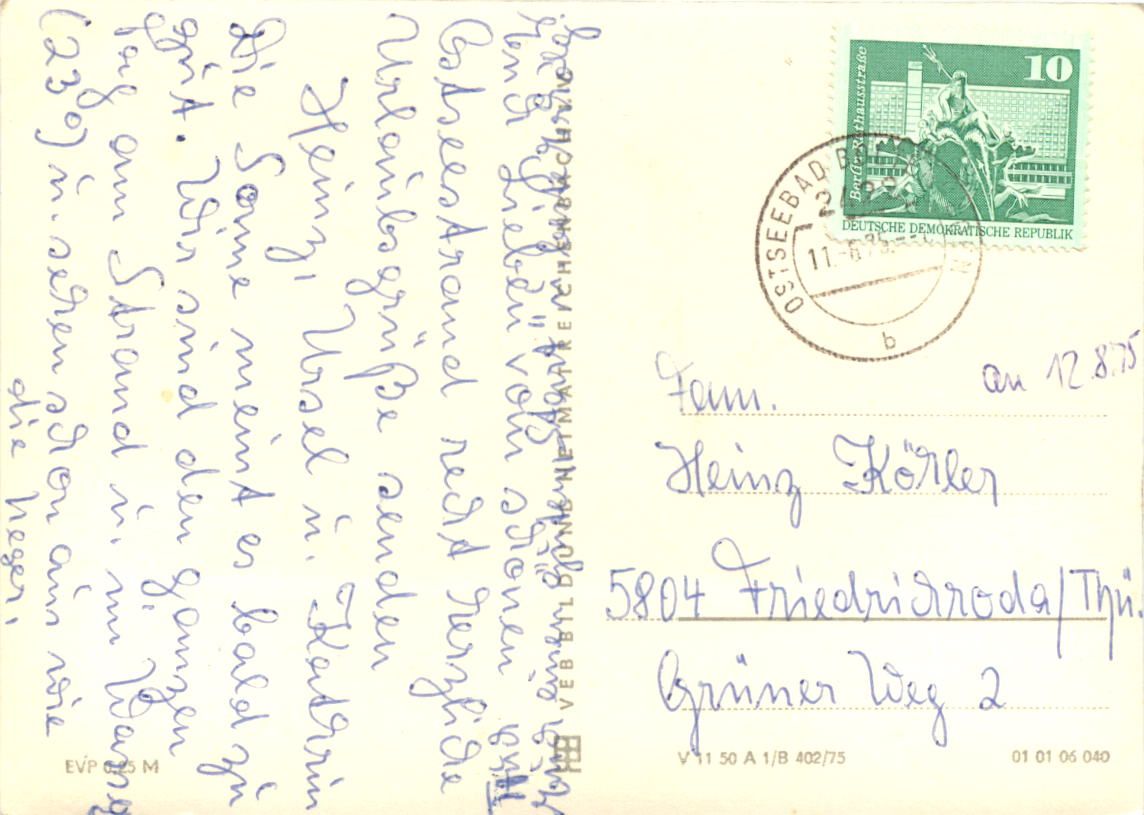 Euch Lieben vom schönen
Ostseestrand recht herzliche
Urlaubsgrüße senden
Heinz, Ursel u. Katrin
Die Sonne meint es bald zu
gut. Wir sind den ganzen
Tag am Strand u. im Wasser
(23°) u. sehen schon aus wie
die Neger.
EVP 0,25 M
VEB BILD UND HEIMAT REICHENBACH I. V.
10
Berlin, Rathausstraße
DEUTSCHE DEMOKRATISCHE REPUBLIK
OSTSEEBAD
11.-8.75
b
an 12.8.75
Fam.
Heinz Köhler
5804 Friedrichroda/Thü.
Grüner Weg 2
V 11 50 A 1/B 402/75
01 01 06 040